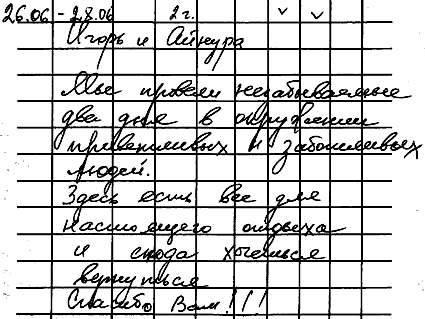 26.06 - 28.06 2 г. ✓ ✓
Игорь и Айнура
Мы провели незабываемые
два дня в окружении
приветливых и заботливых
людей.
Здесь есть все для
настоящего отдыха
и сюда хочется
вернуться
Спасибо Вам!!!